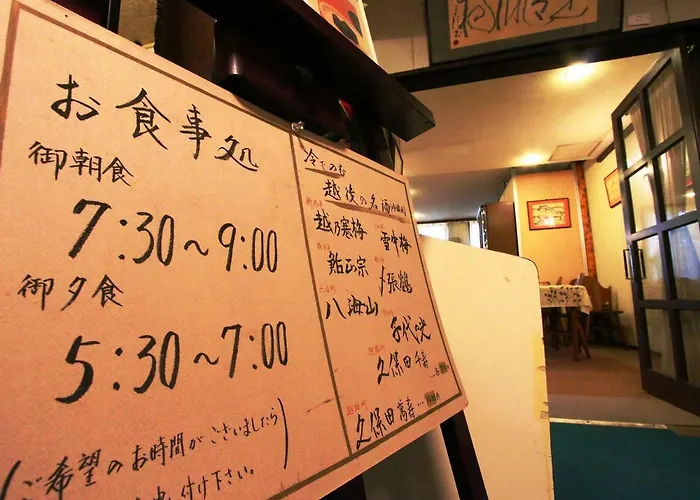 お食事処
御朝食
7:30〜9:00
御夕食
5:30〜7:00
(ご希望のお時間がございましたら
付け下さい。)
冷でのむ
越後の名酒
越乃寒梅
雪中梅
鮎正宗
〆張鶴
八海山
千代の光
久保田 千寿
久保田 萬寿